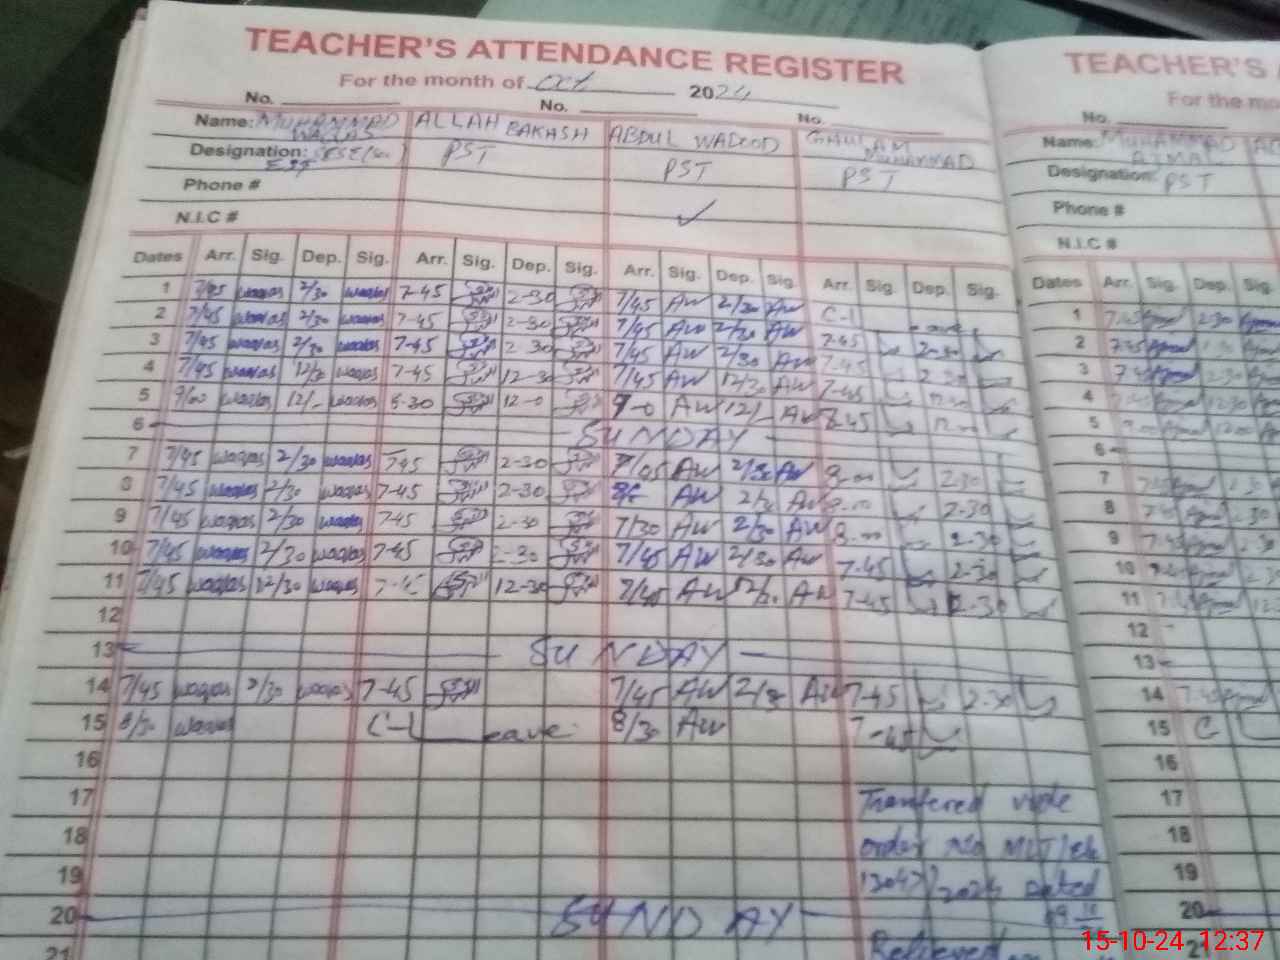 TEACHER'S ATTENDANCE REGISTER
For the month of Oct 2024
No. No. No.
Name: MUHAMMAD WAQAS ALLAH BAKASH ABDUL WADOOD GHULAM MUHAMMAD
Designation: PST PST PST
Phone #
N.I.C #
Dates Arr. Sig. Dep. Sig. Arr. Sig. Dep. Sig. Arr. Sig. Dep. Sig. Arr. Sig. Dep. Sig.
1 7/45 waqas 2/30 waqas 7-45 2-30 7/45 AW 2/30 AW C-L eave
2 7/45 waqas 2/30 waqas 7-45 2-30 7/45 AW 2/30 AW 7-45 2-30
3 7/45 waqas 2/30 waqas 7-45 2-30 7/45 AW 2/30 AW 7-45 2-30
4 7/45 waqas 12/30 waqas 7-45 12-30 7/45 AW 12/30 AW 7-45 12-30
5 9/00 waqas 12/- waqas 8-30 12-0 9-0 AW 12/- AW 8-45 12-00
6 SUNDAY
7 7/45 waqas 2/30 waqas 7-45 2-30 7/45 AW 2/30 AW 8-00 2-30
8 7/45 waqas 2/30 waqas 7-45 2-30 AW 2/30 AW 8-00 2-30
9 7/45 waqas 2/30 waqas 7-45 2-30 7/30 AW 2/30 AW 8-00 2-30
10 7/45 waqas 2/30 waqas 7-45 2-30 7/45 AW 2/30 AW 7-45 2-30
11 7/45 waqas 12/30 waqas 7-45 12-30 7/45 AW 12/30 AW 7-45 12-30
12
13 SUNDAY
14 7/45 waqas 2/30 waqas 7-45 7/45 AW 2/30 AW 7-45 2-30
15 8/30 waqas C-L eave 8/30 AW 7-45
16
17 Tranfered vide
18 order No MLT/
19 /2024 dated
20 SUNDAY
21 Relieved
TEACHER'S A
For the mo
No.
Name: MUHAMMAD AJMAL
Designation: PST
Phone #
N.I.C #
Dates Arr. Sig. Dep. Sig.
1 7-45 2-30
2 7-45
3 7-45 2-30
4 7-45 12-30
5 9-00 12-00
6
7 7-45 2-30
8 7-45 2-30
9 7-45 2-30
10 7-45 2-30
11 7-45
12
13
14 7-45
15 C L
16
17
18
19
20
21
15-10-24 12:37